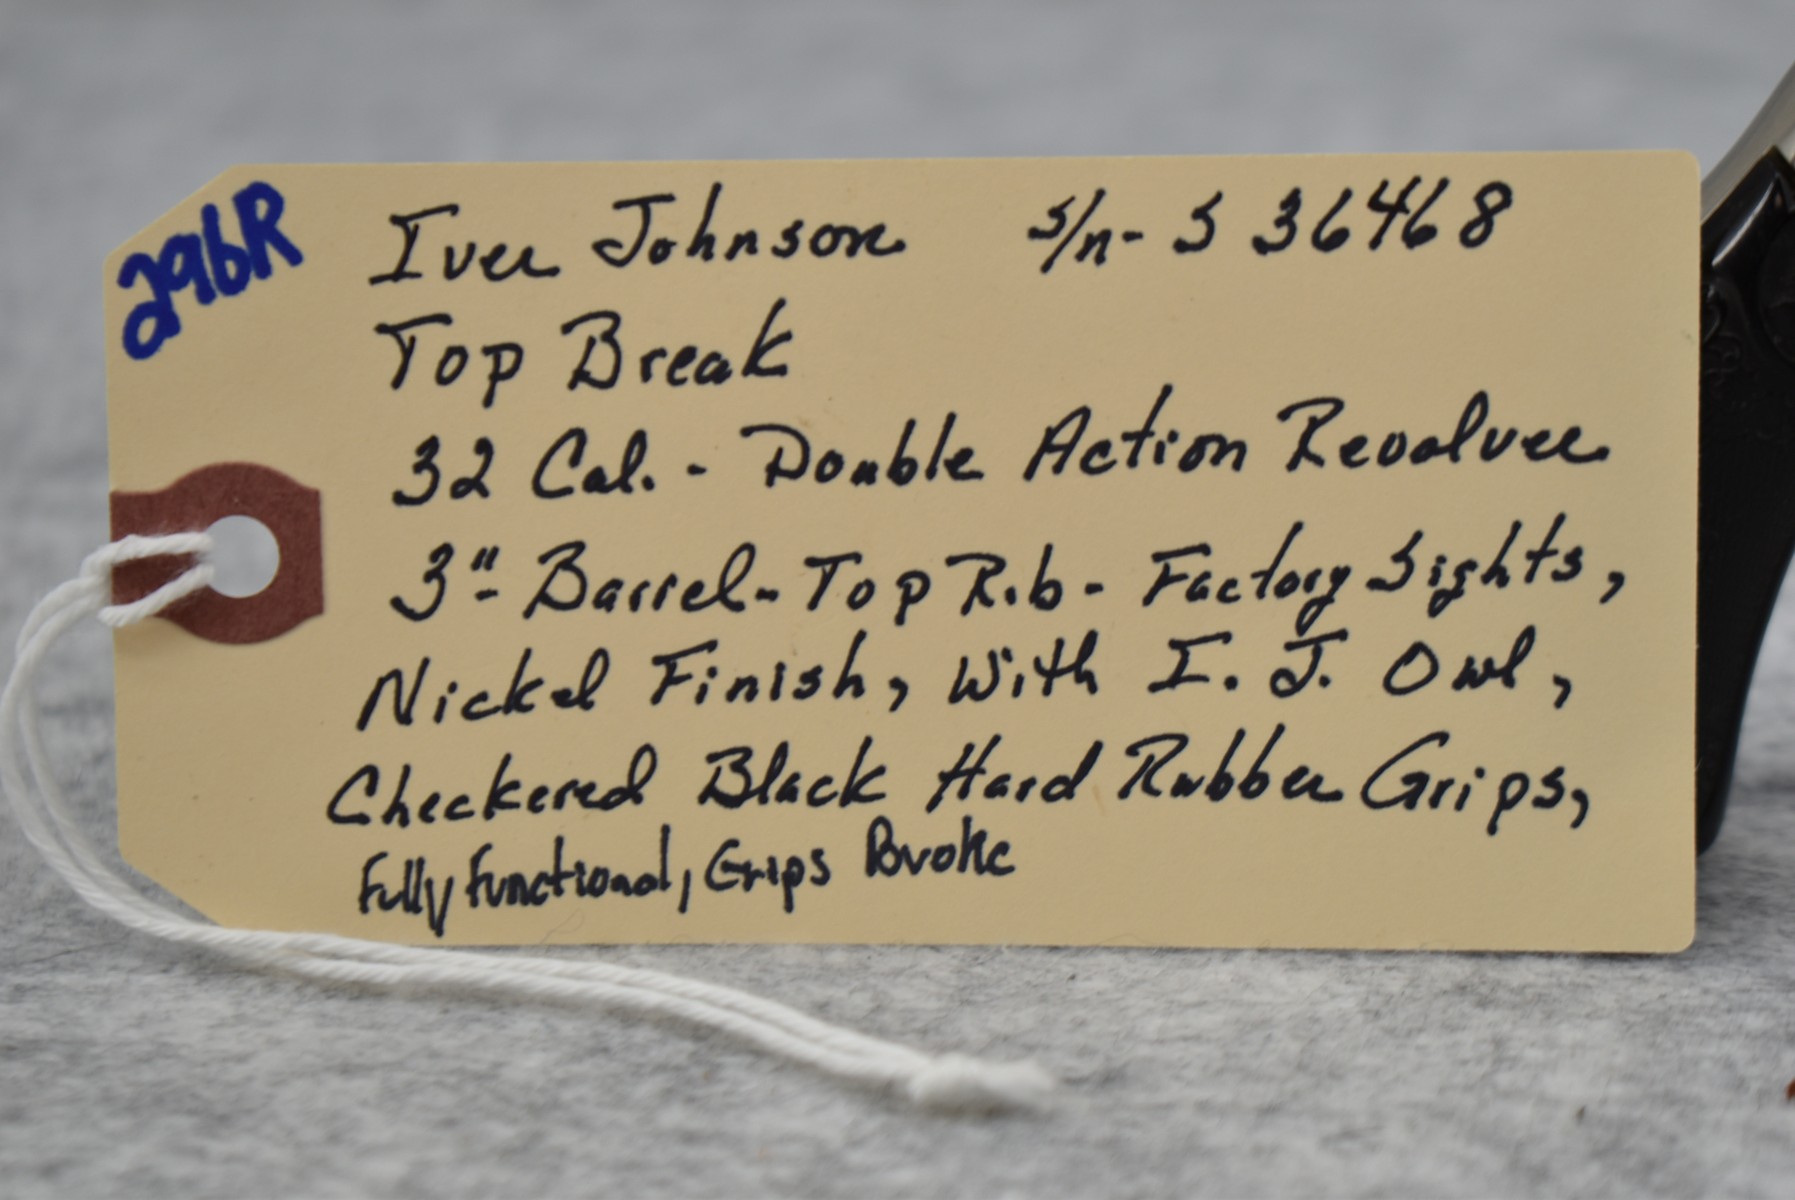 296R
Iver Johnson s/n- S 36468
Top Break
32 Cal. - Double Action Revolver
3"- Barrel - Top Rib - Factory Sights,
Nickel Finish, With I. J. Owl,
Checkered Black Hard Rubber Grips,
Fully Functional, Grips Broke